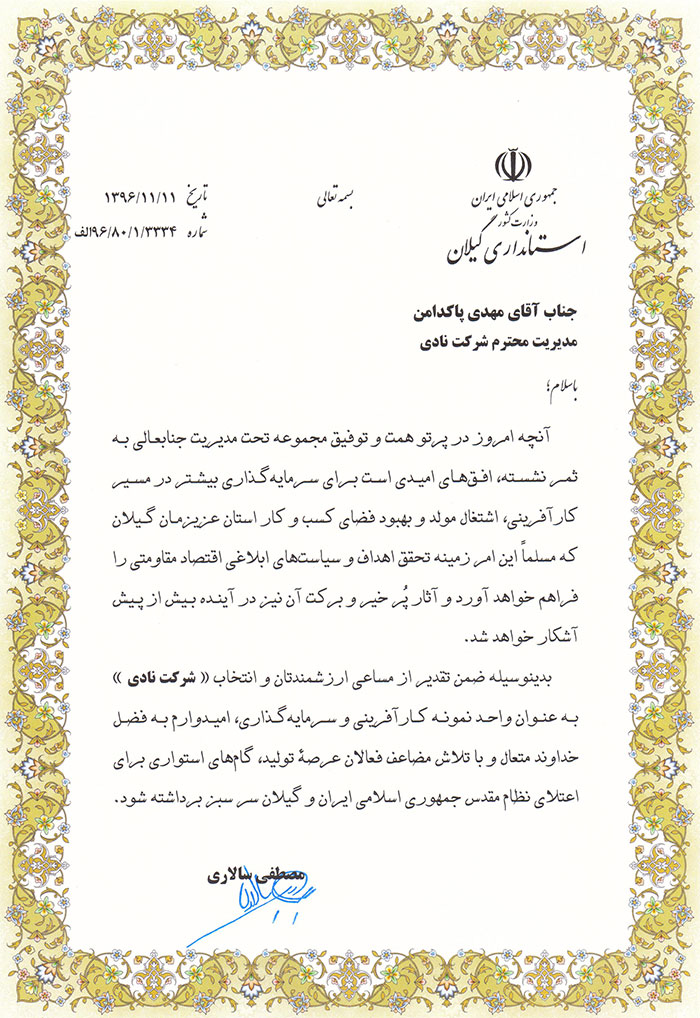 جمهوری اسلامی ایران
وزارت کشور
استانداری گیلان
بسمه تعالی
تاریخ ۱۳۹۶/۱۱/۱۱
شماره ۹۶/۸۰/۱/۳۳۳۴الف
جناب آقای مهدی پاکدامن
مدیریت محترم شرکت نادی
باسلام؛
آنچه امروز در پرتو همت و توفیق مجموعه تحت مدیریت جنابعالی به
ثمر نشسته، افق‌های امیدی است برای سرمایه‌گذاری بیشتر در مسیر
کارآفرینی، اشتغال مولد و بهبود فضای کسب و کار استان عزیزمان گیلان
که مسلماً این امر زمینه تحقق اهداف و سیاست‌های ابلاغی اقتصاد مقاومتی را
فراهم خواهد آورد و آثار پُر خیر و برکت آن نیز در آینده بیش از پیش
آشکار خواهد شد.
بدینوسیله ضمن تقدیر از مساعی ارزشمندتان و انتخاب « شرکت نادی »
به عنوان واحد نمونه کارآفرینی و سرمایه‌گذاری، امیدوارم به فضل
خداوند متعال و با تلاش مضاعف فعالان عرصهٔ تولید، گام‌های استواری برای
اعتلای نظام مقدس جمهوری اسلامی ایران و گیلان سر سبز برداشته شود.
مصطفی سالاری